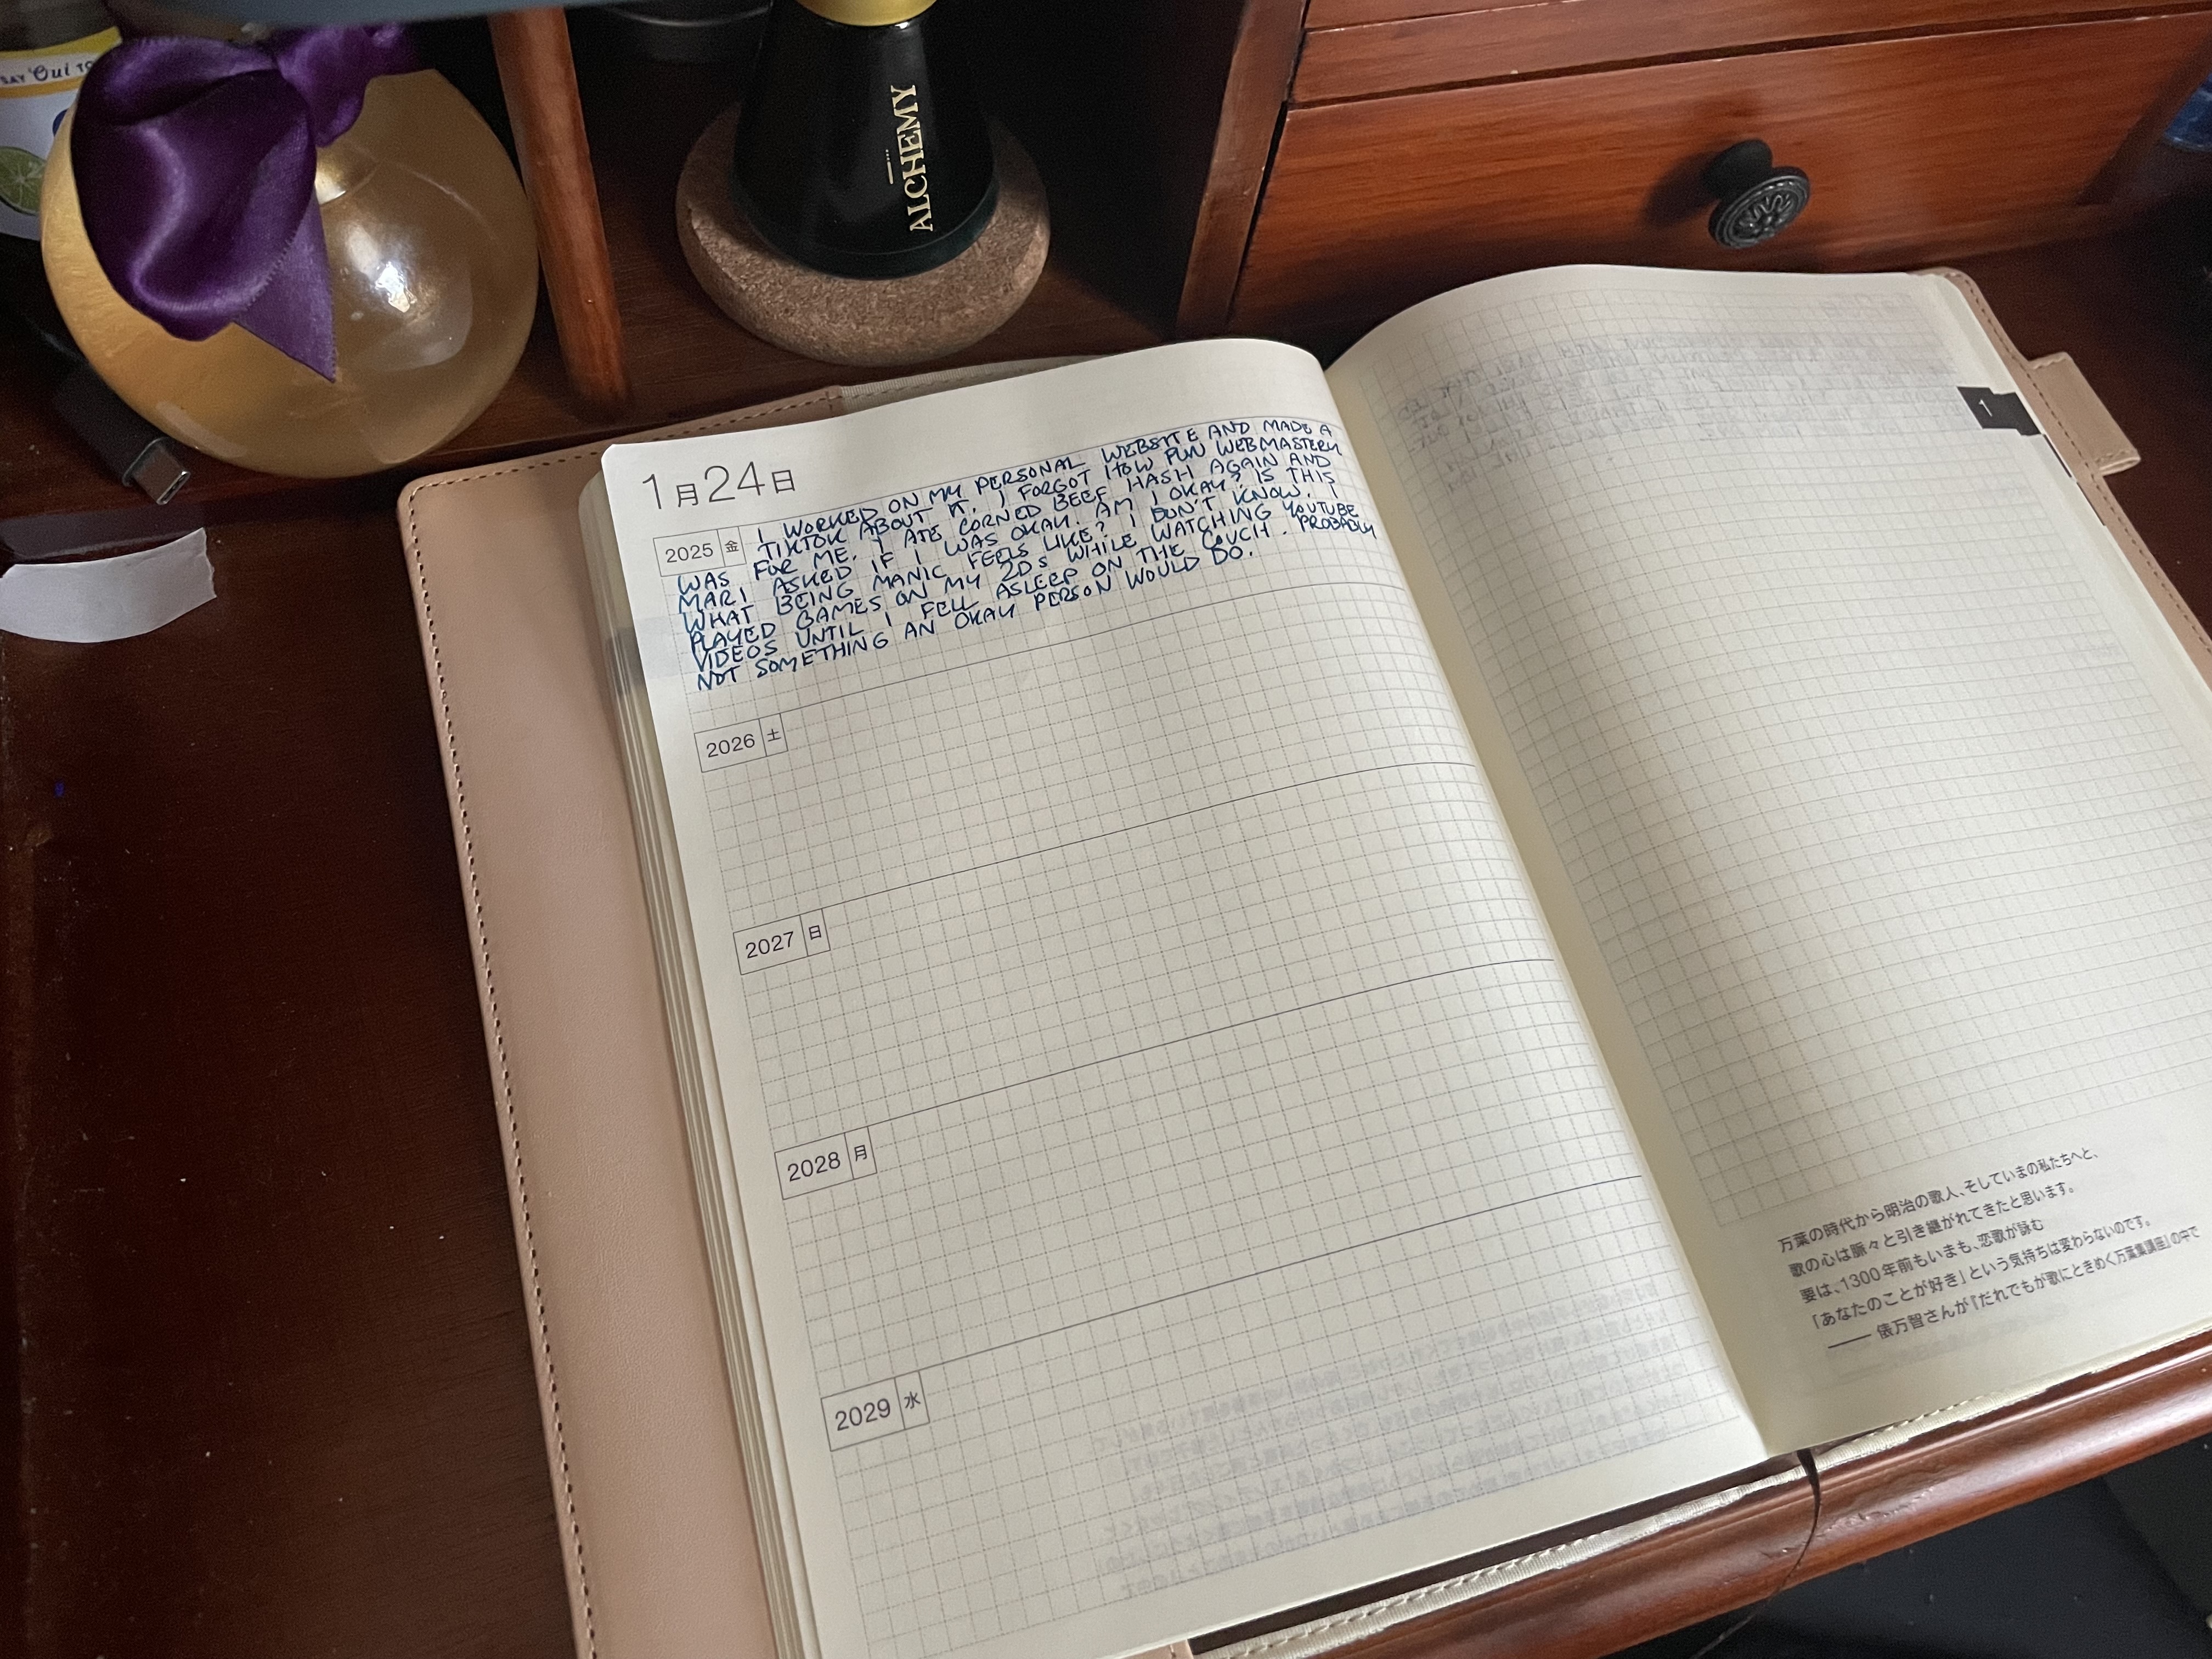 SAY Oui TO
ALCHEMY
1月24日
2025 金
I WORKED ON MY PERSONAL WEBSITE AND MADE A
TIKTOK ABOUT IT. I FORGOT HOW FUN WEBMASTERY
WAS FOR ME. I ATE CORNED BEEF HASH AGAIN AND
MARI ASKED IF I WAS OKAY. AM I OKAY? IS THIS
WHAT BEING MANIC FEELS LIKE? I DON'T KNOW. I
PLAYED GAMES ON MY 2DS WHILE WATCHING YOUTUBE
VIDEOS UNTIL I FELL ASLEEP ON THE COUCH. PROBABLY
NOT SOMETHING AN OKAY PERSON WOULD DO.
2026 土
2027 日
2028 月
2029 水
1
万葉の時代から明治の歌人、そしていまの私たちへと、
歌の心は脈々と引き継がれてきたと思います。
要は、1300年前もいまも、恋歌が詠む
「あなたのことが好き」という気持ちは変わらないのです。
—— 俵万智さんが『だれでもが歌にときめく万葉集講座』の中で